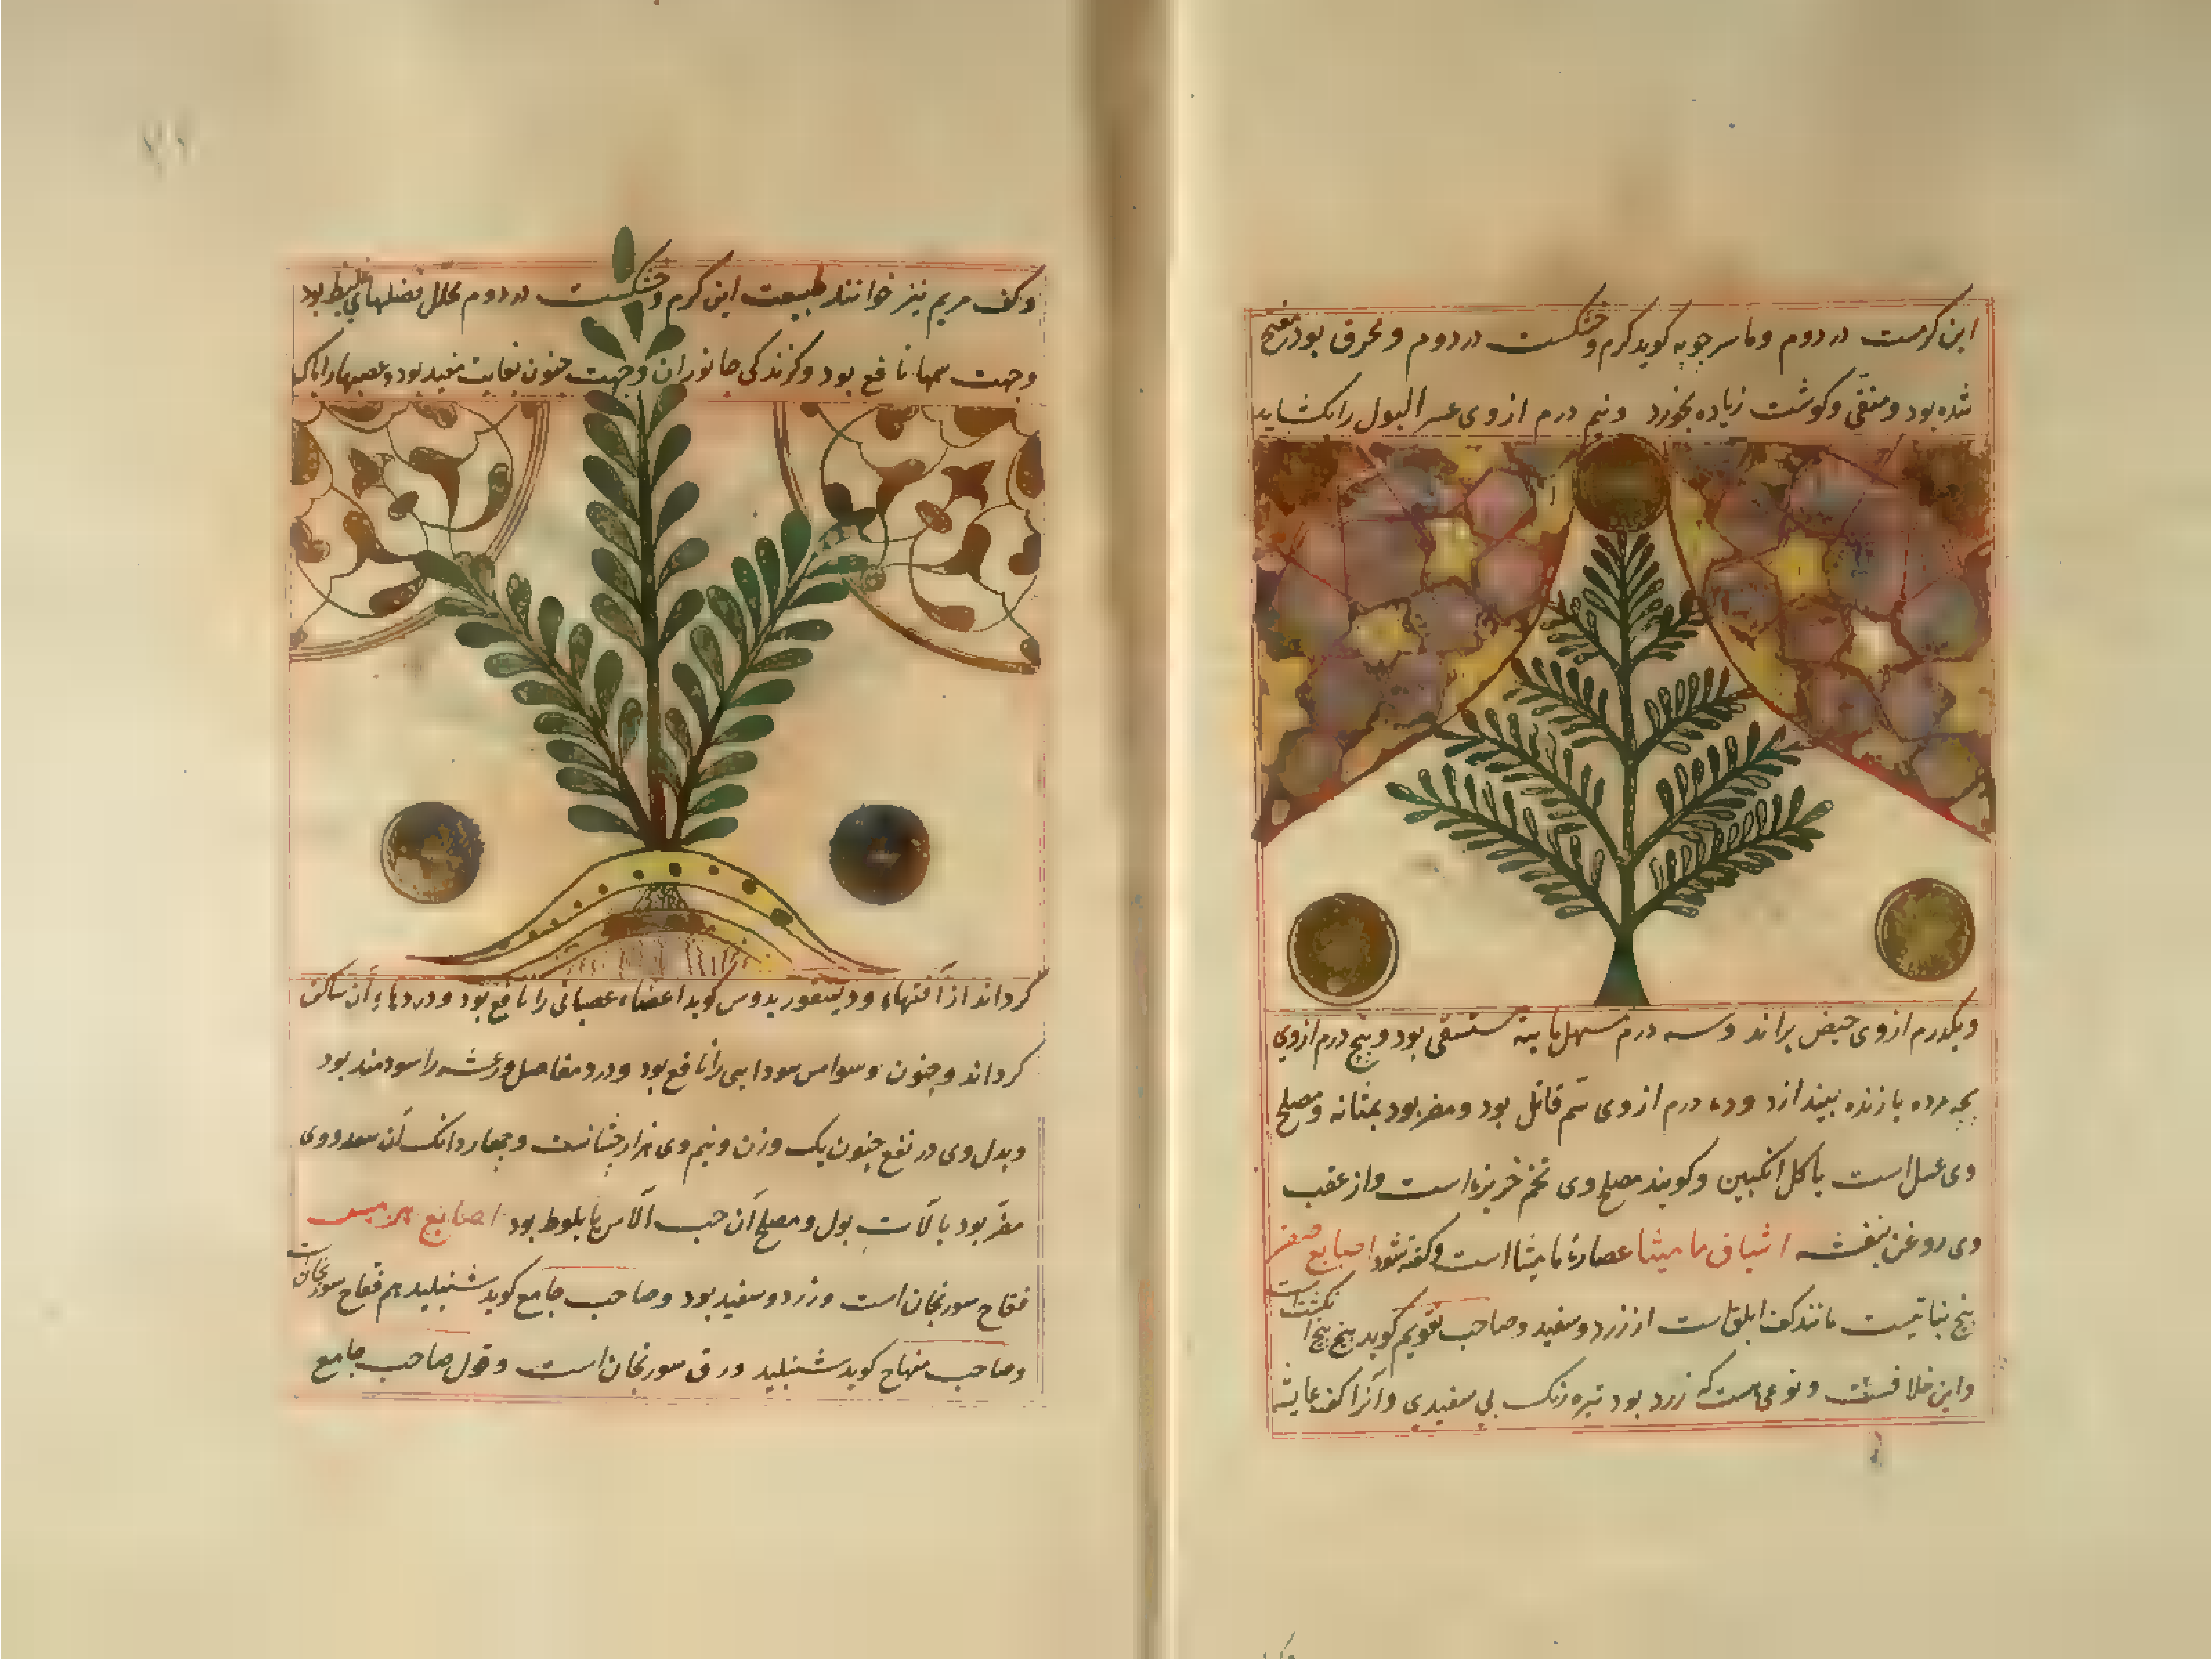 این کرمست در دوم و ماسرجویه کوید کرم و خشکست در دوم و محرق بود مفتح
شده بود و منقی و کوشت زیاده بخورد و نیم درم از وی عسر البول را بکشاید
و یکدرم از وی حیض براند و سه درم مسهل ماییة مستسقی بود و پنج درم از وی
بچه مرده یا زنده بیندازد و ده درم از وی سم قاتل بود و مضر بود بمثانه و مصلح
وی عسل است یا کل انکبین و کویند مصلح وی تخم خربزه است و از عقب
وی روغن بنفشه اشیاف مامیثا عصارۀ مامیثا است و کفته شود اصابع صفر
بیخ نباتیست مانند کف ابلق است از زرد و سفید و صاحب تقویم کوید بیخ پنج انکشت است
و این خلافست و نوعی هست که زرد بود تیره رنک بی سفیدی و آنرا کف عایشه
و کف مریم نیز خوانند طبیعت این کرم و خشکست در دوم محلل فضلهای غلیظ بود
و جهت سمها نافع بود و کزندکی جانوران و جهت جنون بغایت مفید بود و عصبها را پاک
کرداند از آفتها و دیسقوریدوس کوید اعضاء عصبانی را نافع بود و دردهاء آن ساکن
کرداند و جنون و سواس سودایی را نافع بود و درد مفاصل و رعشه را سودمند بود
و بدل وی در نفع جنون یک وزن و نیم وی هزارجشانست و چهار دانک آن سعد و وی
مضر بود بآلات بول و مصلح آن حب الآس یا بلوط بود اصابع هرمس
فقاح سورنجان است و زرد و سفید بود و صاحب جامع کوید شنبلید هم فقاح سورنجان است
و صاحب منهاج کوید شنبلید ورق سورنجان است و قول صاحب جامع